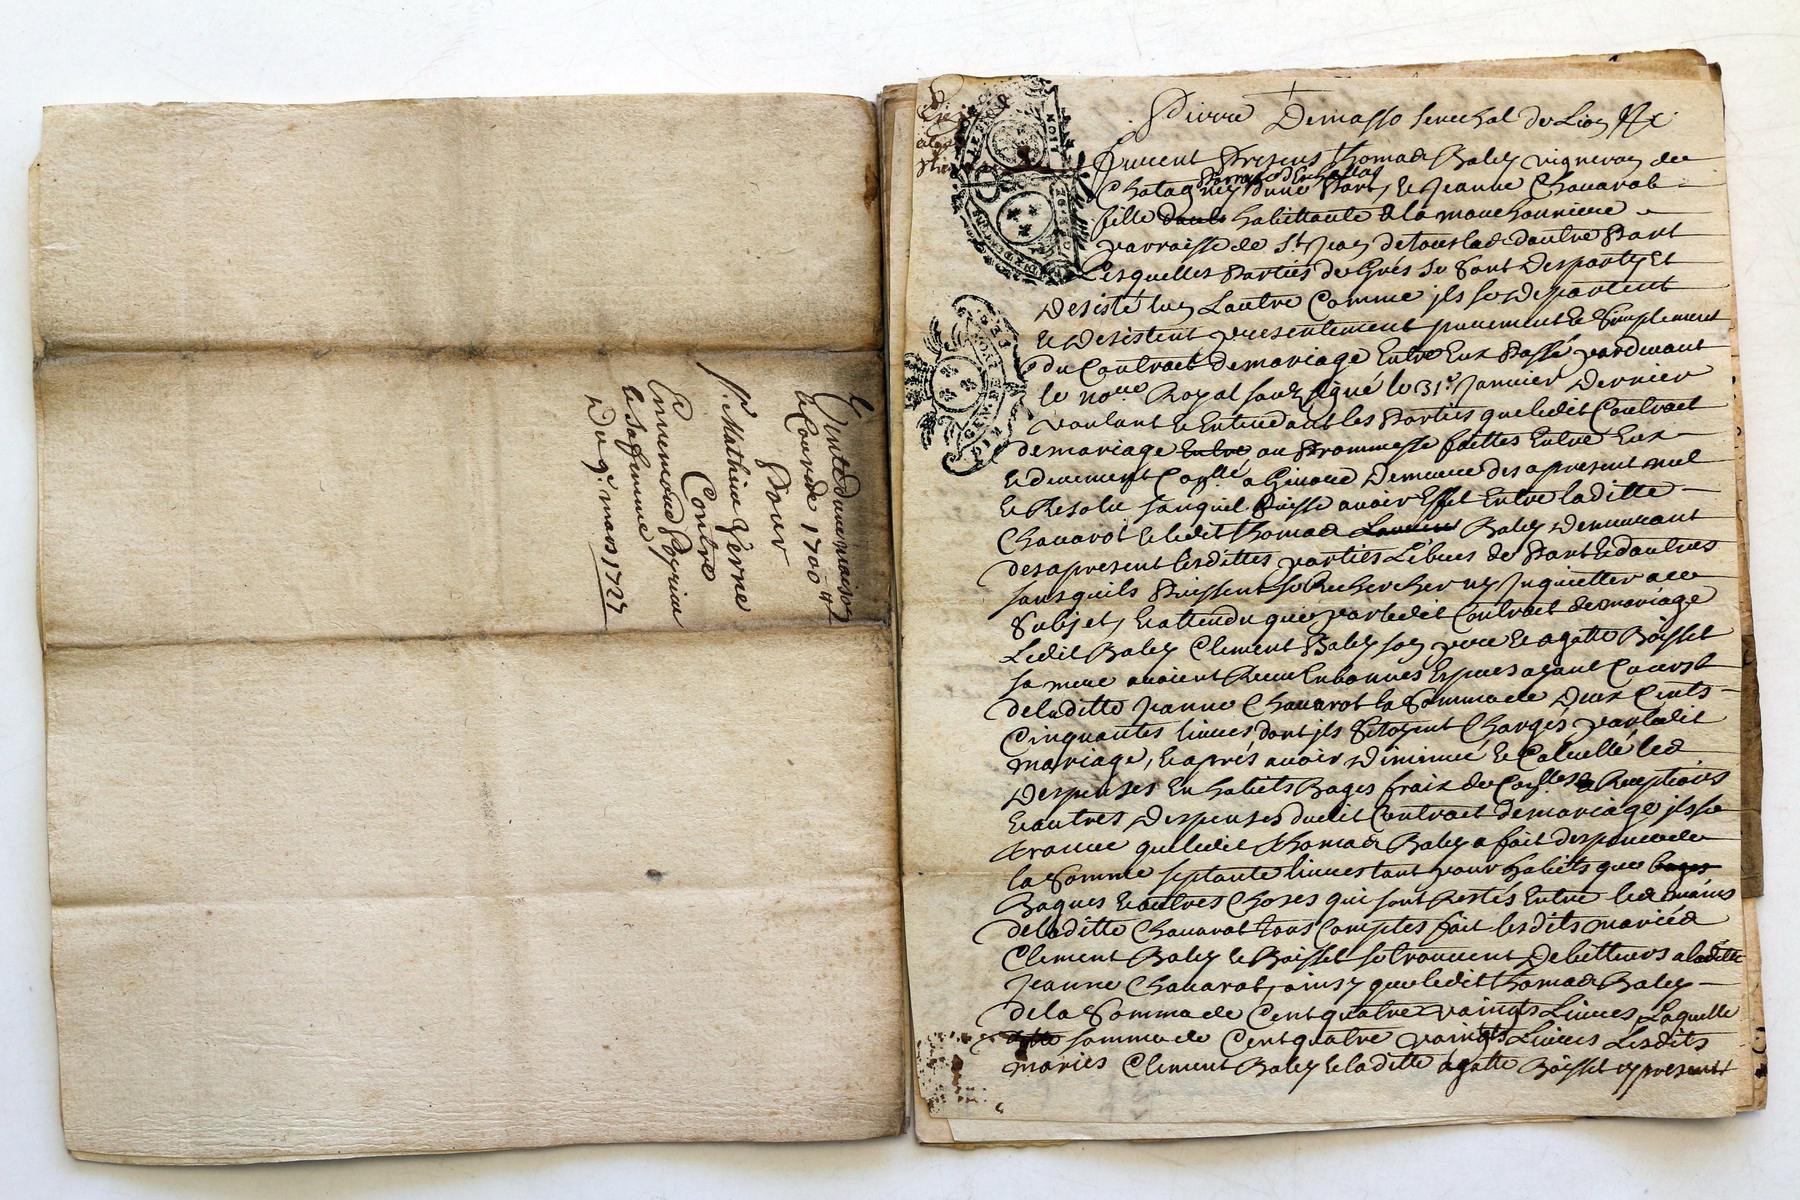 Vente dune maison
a Courzde 1700 lt
Pour
Sr. Mathieu Verne
Contre
Ennemond Peyrieu
et sa femme
Du 9e. mars 1727
Pierre Demasso senechal de Lion &c
furent Presens Thomas Baley vigneron de
Chatagney dune Part, et Jeanne Chavarot
fille habittante a la
parroisse de St Jean de touslas dautre Part
Lesquelles Parties de Grés se sont Desparty et
Desisté lun Lautre Comme ils se Departent
et Desistent presentement purement et Simplement
du Contract de mariage Entre Eux Passé pardevant
le nore. Royal souzsigné le 31e. Janvier Dernier
voulant et Entendant les Parties que ledit Contract
de mariage Entre ou Prommesse faittes Entre Eux
et duement Conllé. a Demeure des apresent nul
et Resolu sans quil Puisse avoir Effet Entre laditte
Chavarot et ledit Thomas Baley Demeurant
des apresent lesdittes parties Libres de Part et dautres
sans quils Puissent se Rechercher ny Inquietter a ce
Subjet, et attendu que par ledit Contract de mariage
Ledit Baley Clement Baley son pere et agatte Boisset
sa mere avoient Receu En bonnes Espees ayant Cours
de laditte Jeanne Chavarot la Somme de Deux Cents
Cinquantes livres dont ils Sétoyent Chargés par ledit
mariage, et aprés avoir Diminué et Calcullé les
Despenses En habits Bages fraix de Receptions
et autres Despenses dudit Contract de mariage il se
trouve que ledit Thomas Baley a fait despence de
la Somme septante livres tant pour habits que bages
Bagues et autres Choses qui sont Restés Entre les mains
de laditte Chavarot tous Comptes fait lesdits mariés
Clement Baley et Boisset se trouvent Debitteurs a laditte
Jeanne Chavarot, ainsy que ledit Thomas Baley
de la Somme de Cent quatre vaingts Livres, Laquelle
somme de Cent quatre vaingts Livres Lesdits
mariés Clement Baley et laditte agatte Boisset y present